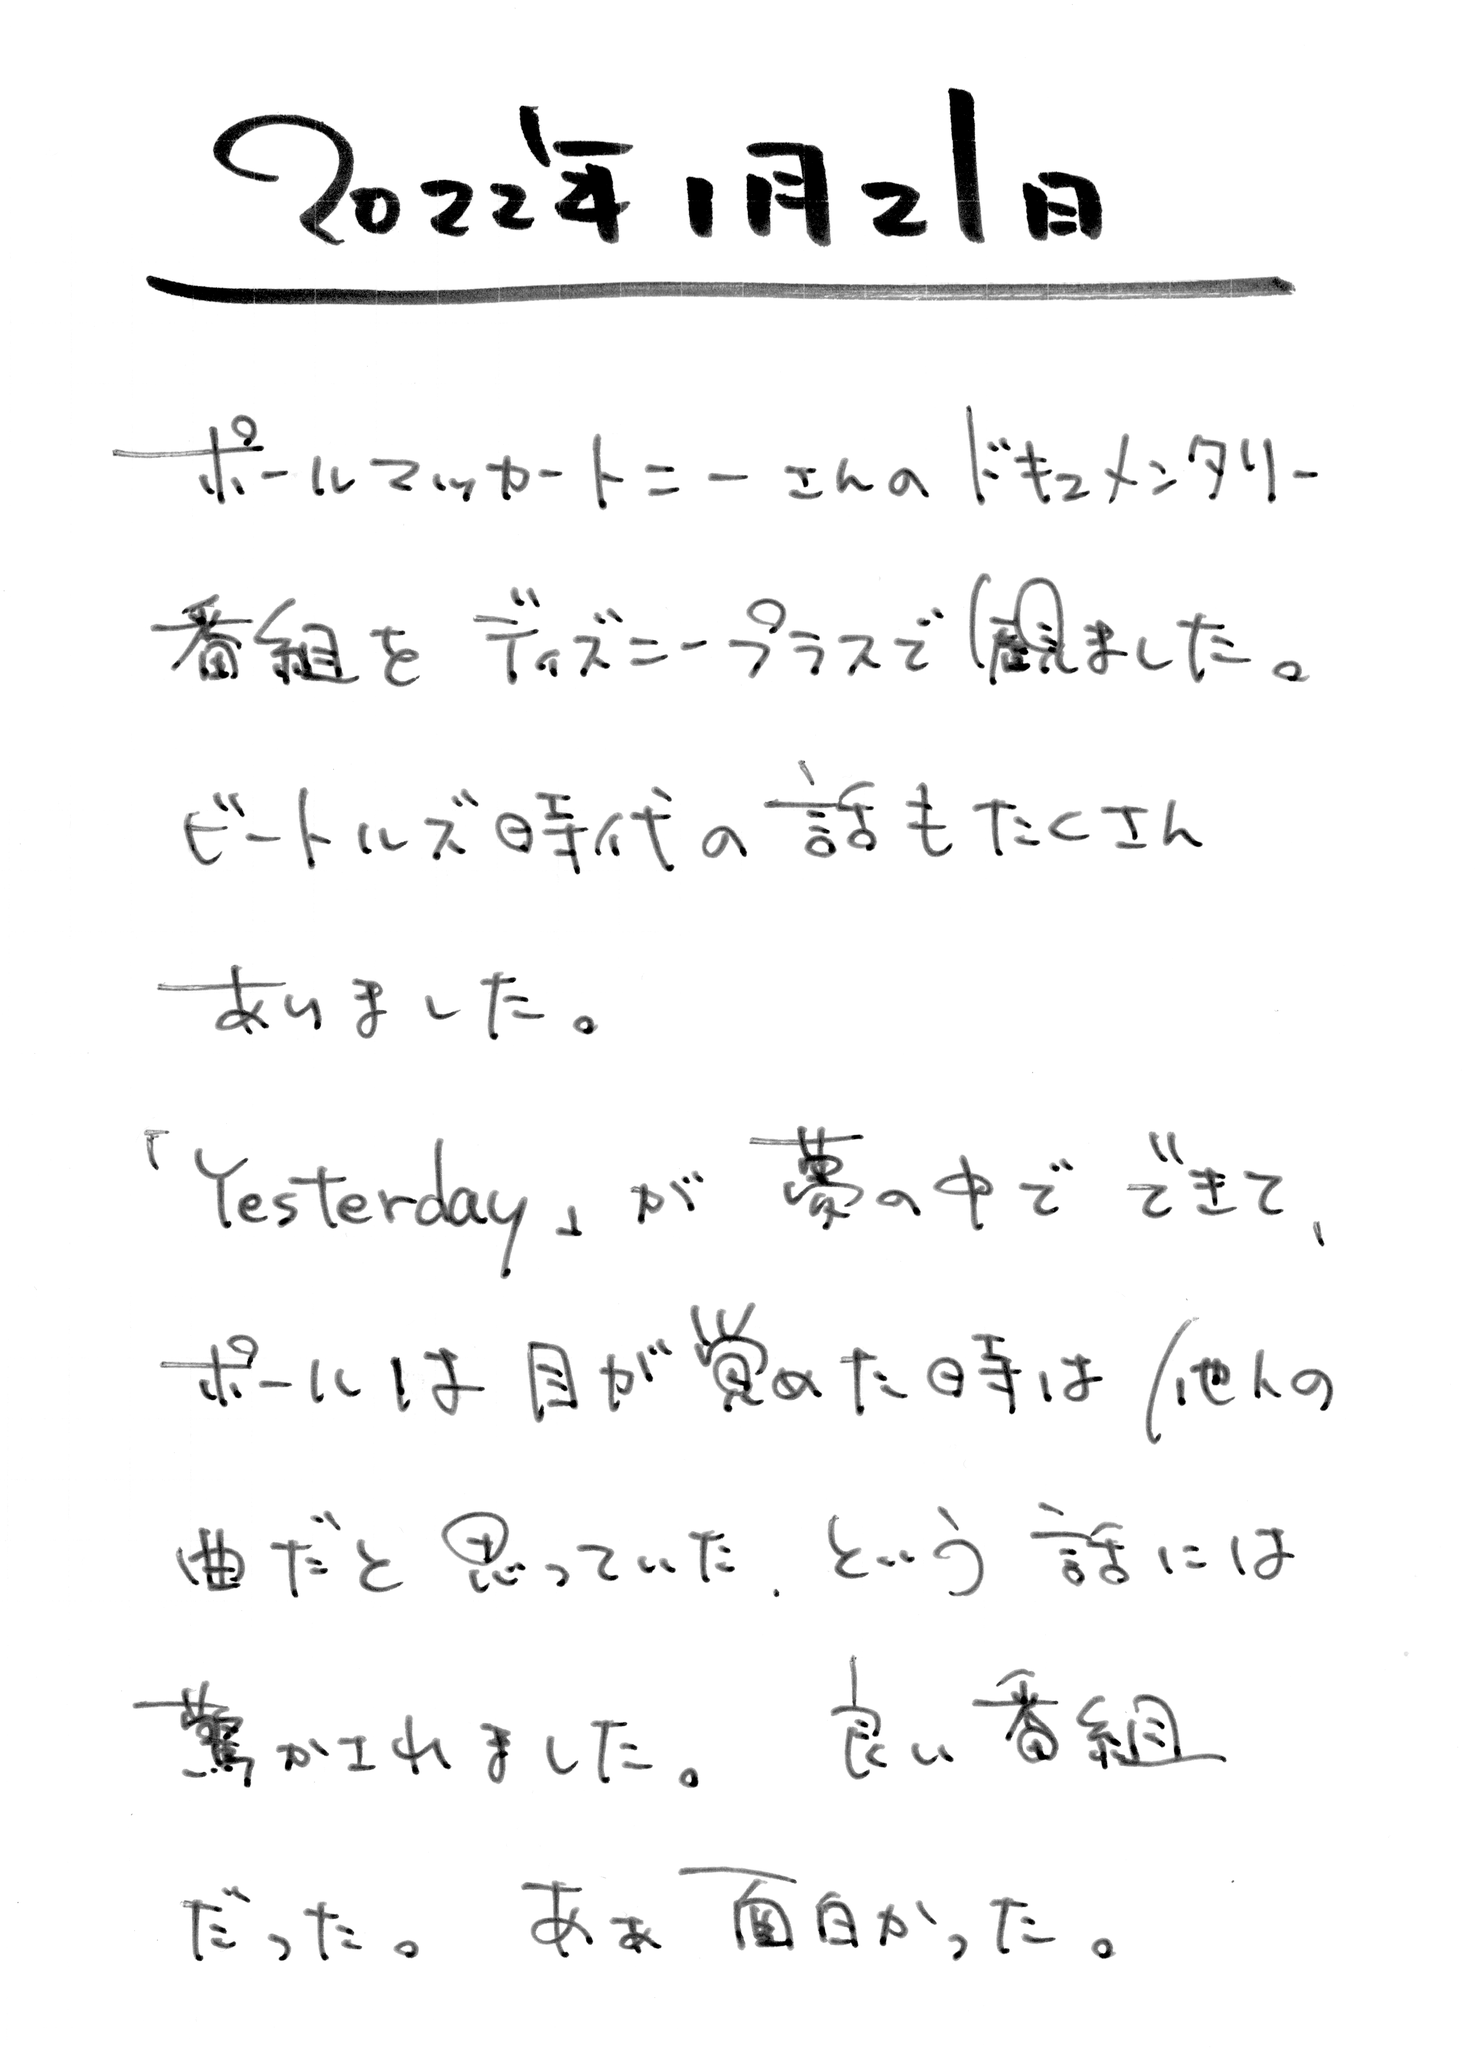 2022年1月21日
ポールマッカートニーさんのドキュメンタリー
番組をディズニープラスで観ました。
ビートルズ時代の話もたくさん
ありました。
「Yesterday」が夢の中でできて、
ポールは目が覚めた時は他人の
曲だと思っていた、という話には
驚かされました。 良い番組
だった。 あぁ面白かった。